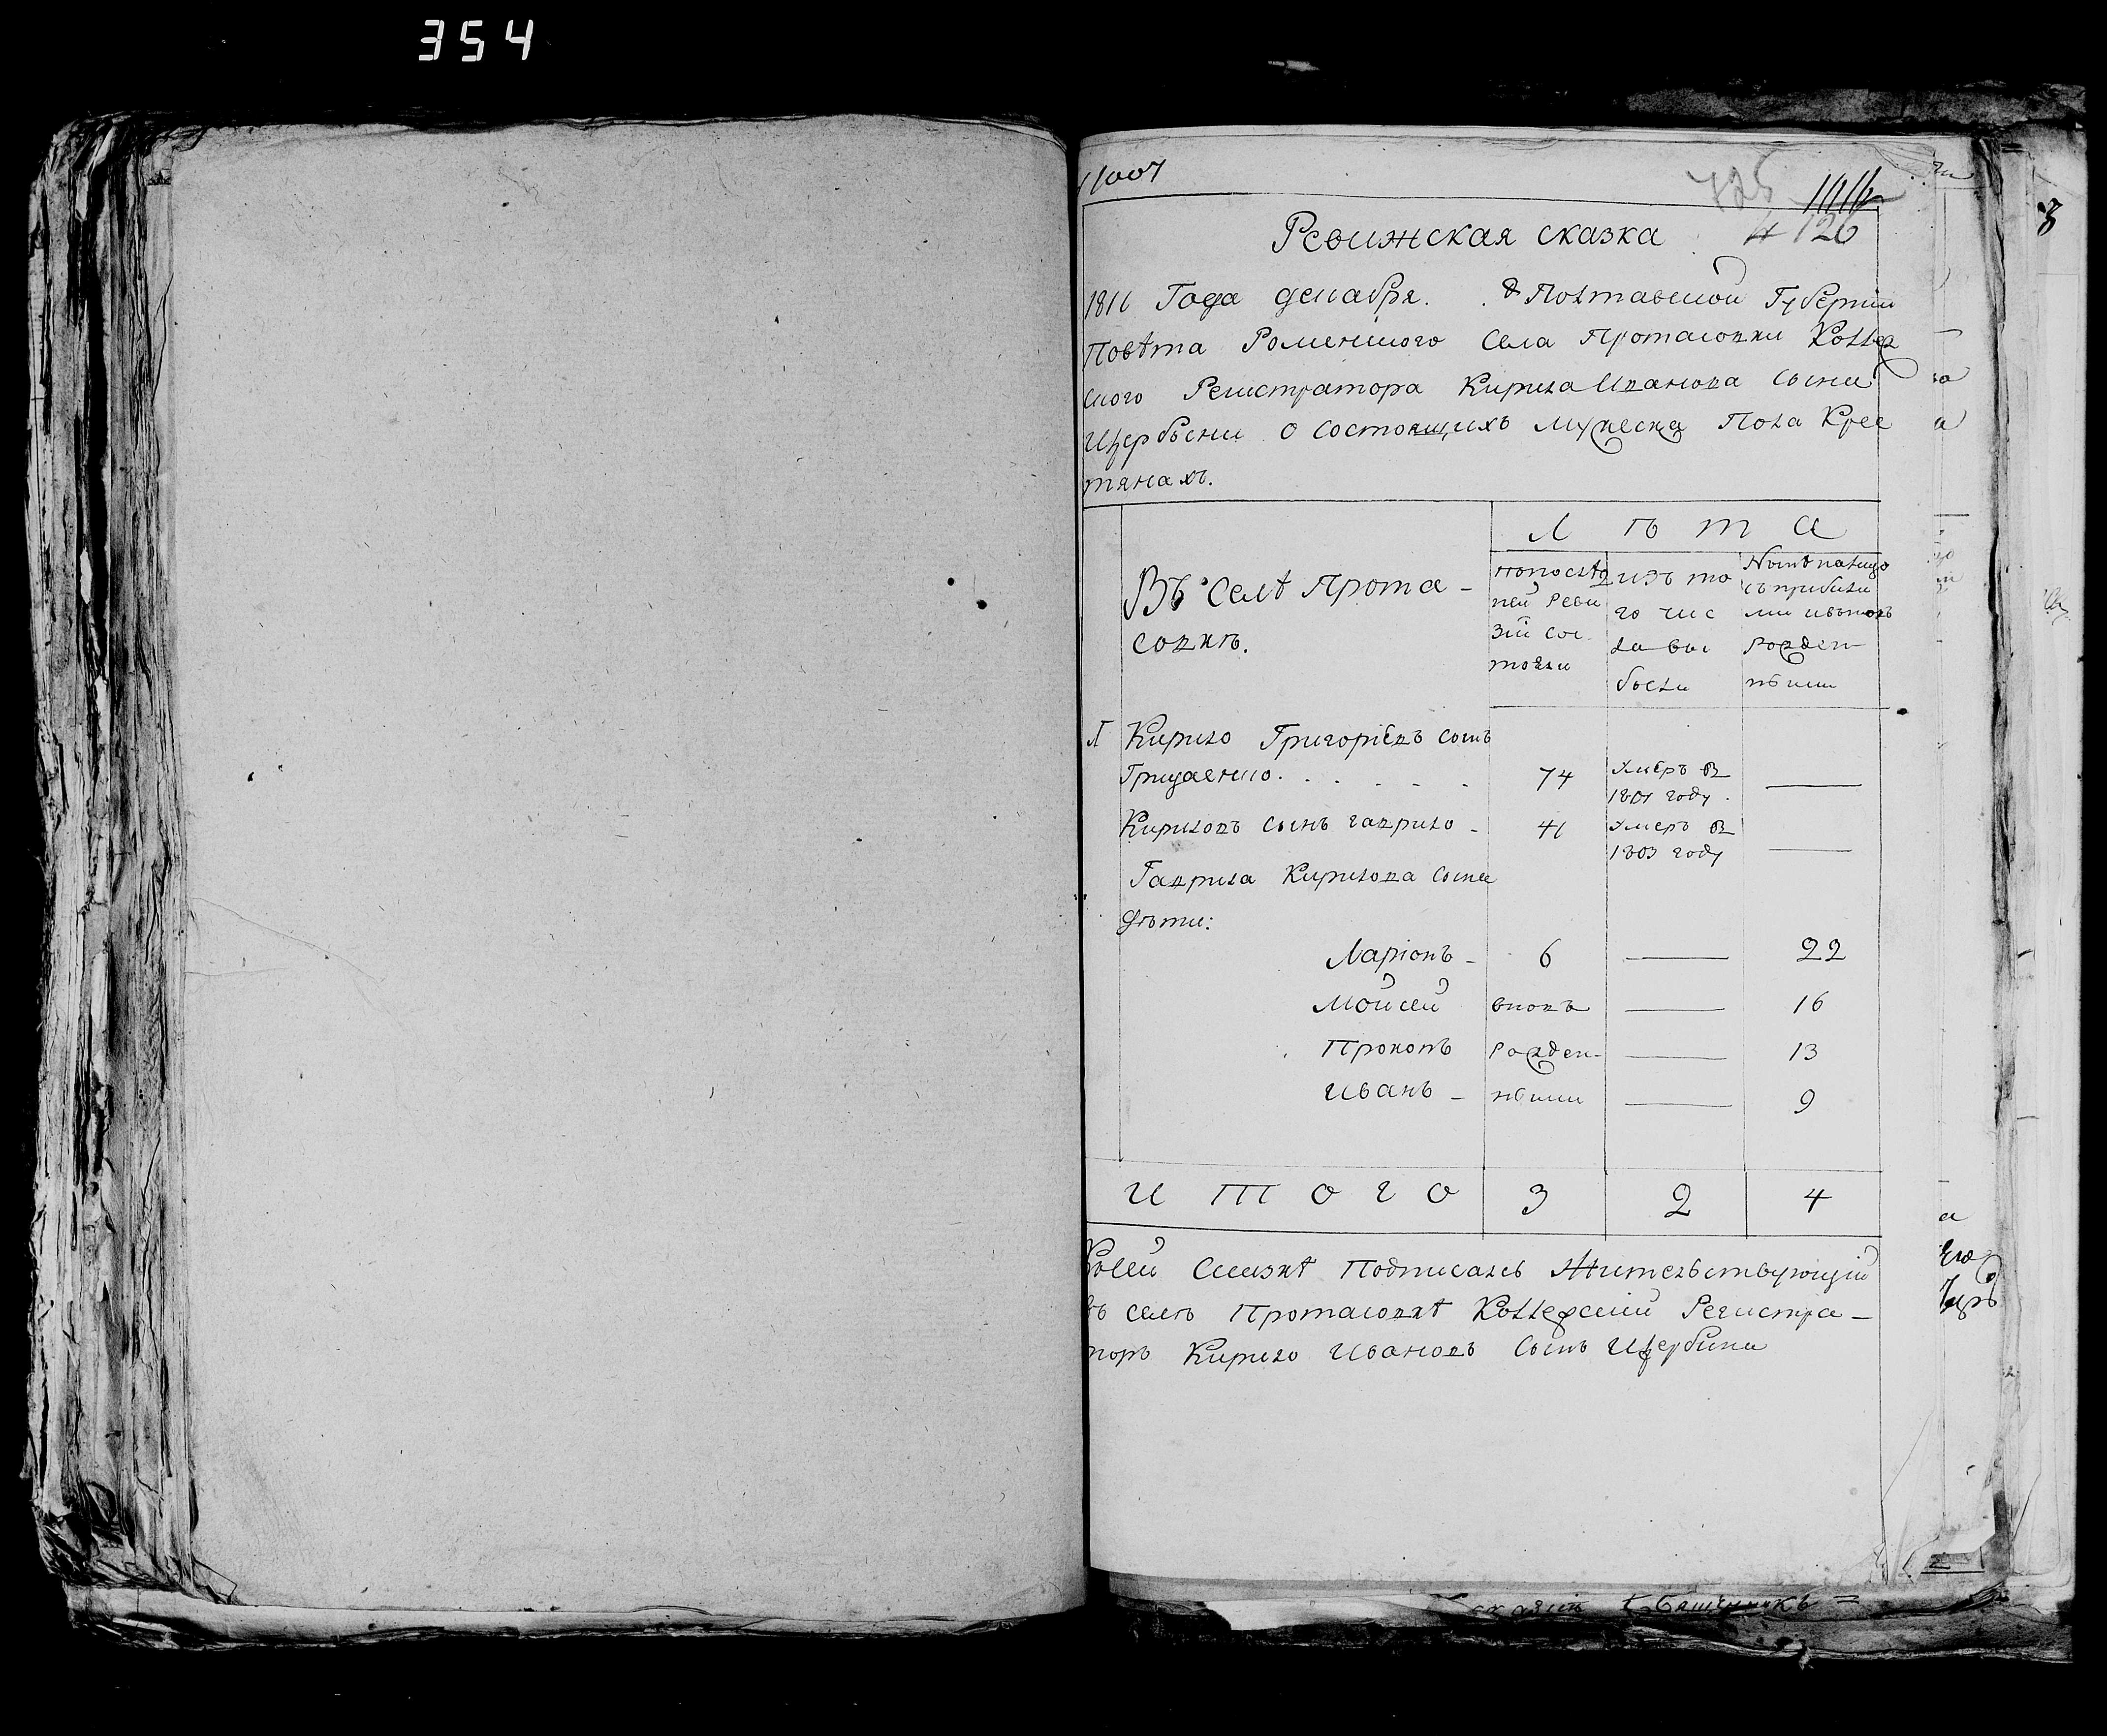 354
1007
725
126
Ревижская сказка
1811 Года декабря. Полтавской Губернии
Повѣта Роменского Села Протасовки Коллеж
ского Регистратора Кирила Иванова сына
Щербыни о состоящихъ мужеска Пола Крес
тянахъ.
Въ Селѣ Прота-
совкѣ.
Л ѣ т а
попослѣд
ней Реви
зіи сос
тояли
изъ то
го чис
ла вы
были
Нынѣ налицо
съ прибылы
ми ивъновь
рожден
ныими
1 Кирило Григоріевъ сынъ
Грицаенко. 74 Умеръ в 1801 году. —
Кириловъ сынъ гаврило - 41 Умеръ в 1803 году —
Гаврила Кирилова сына
дѣти:
Ларіонъ - 6 — 22
Мойсей вновь — 16
Прокопъ рожден- — 13
Иванъ - ныими — 9
И т о г о 3 2 4
Ксей Сказкѣ Подписалъ Жительствующій
въ селѣ Протасовкѣ Коллежский Регистра-
торъ Кирило Ивановъ Сынъ Щербина